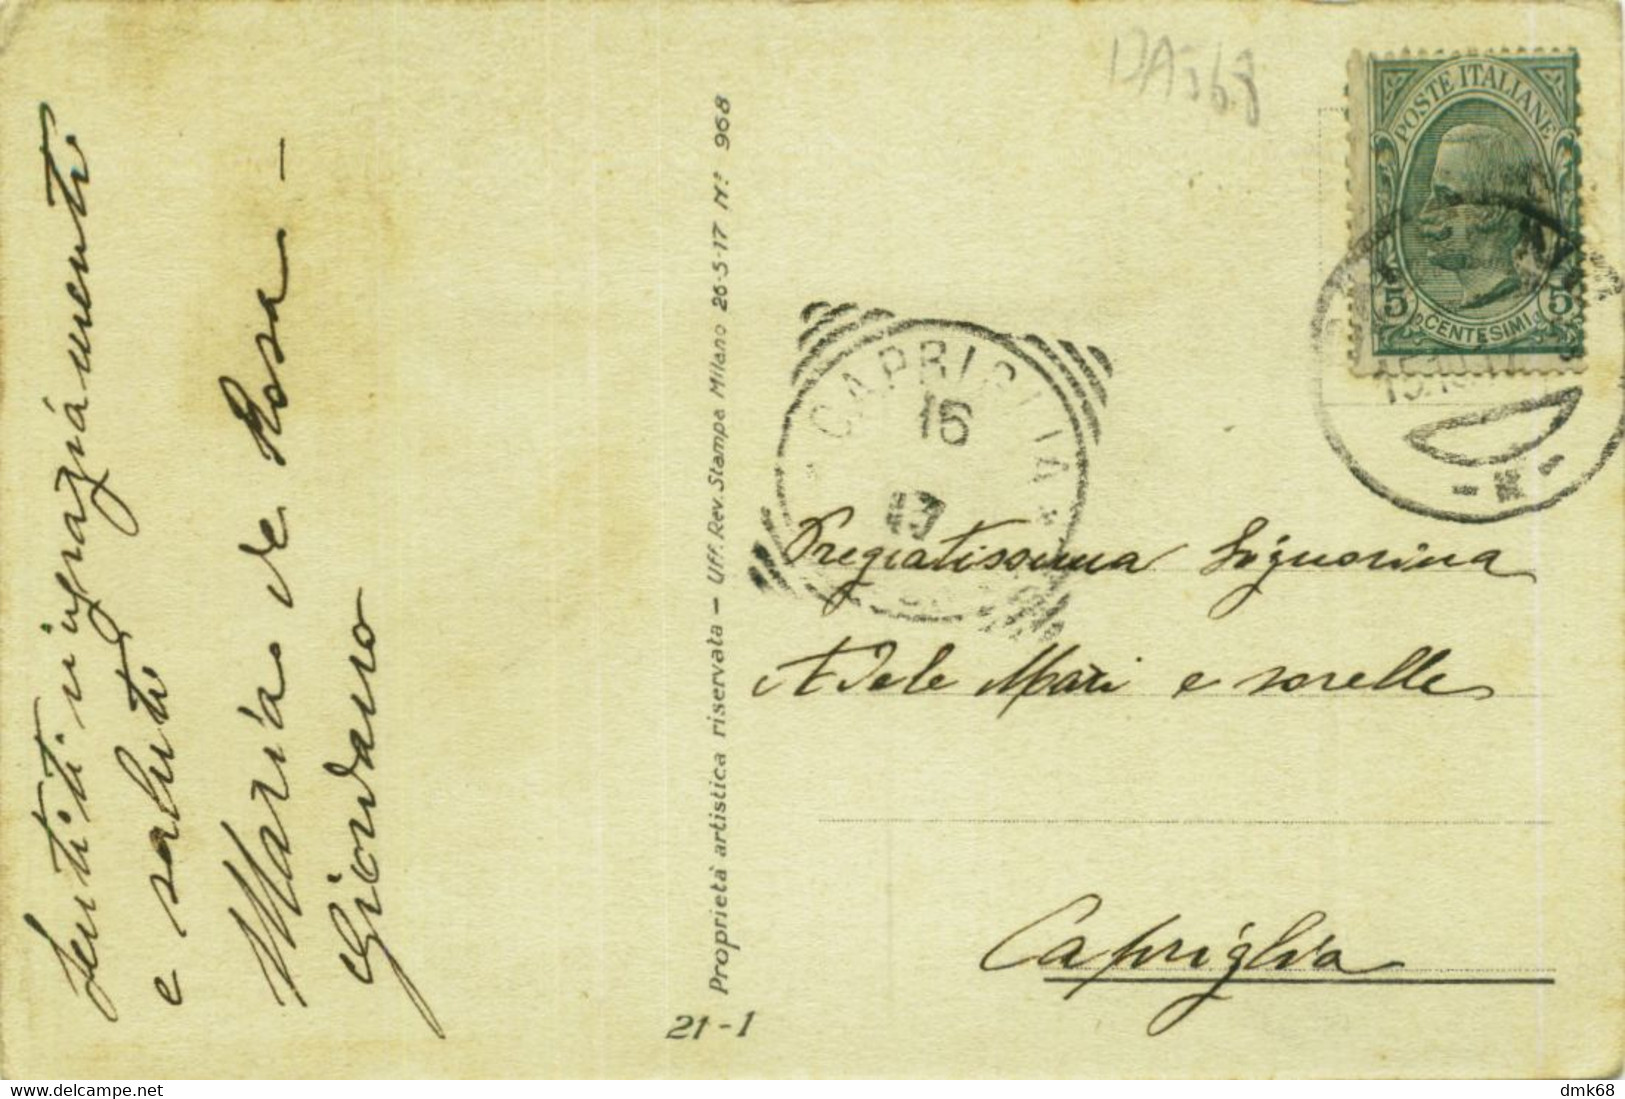 Sentiti ringraziamenti
e saluti
Maria de Rosa –
Giordano
Proprietà artistica riservata – Uff. Rev. Stampa Milano 26-5-17 N.º 968
21-1
POSTE ITALIANE
5 CENTESIMI 5
CAPRIGLIA
16
17
Pregiatissima Signorina
Adele Mari e sorelle
Capriglia
delcampe.net
dmk68